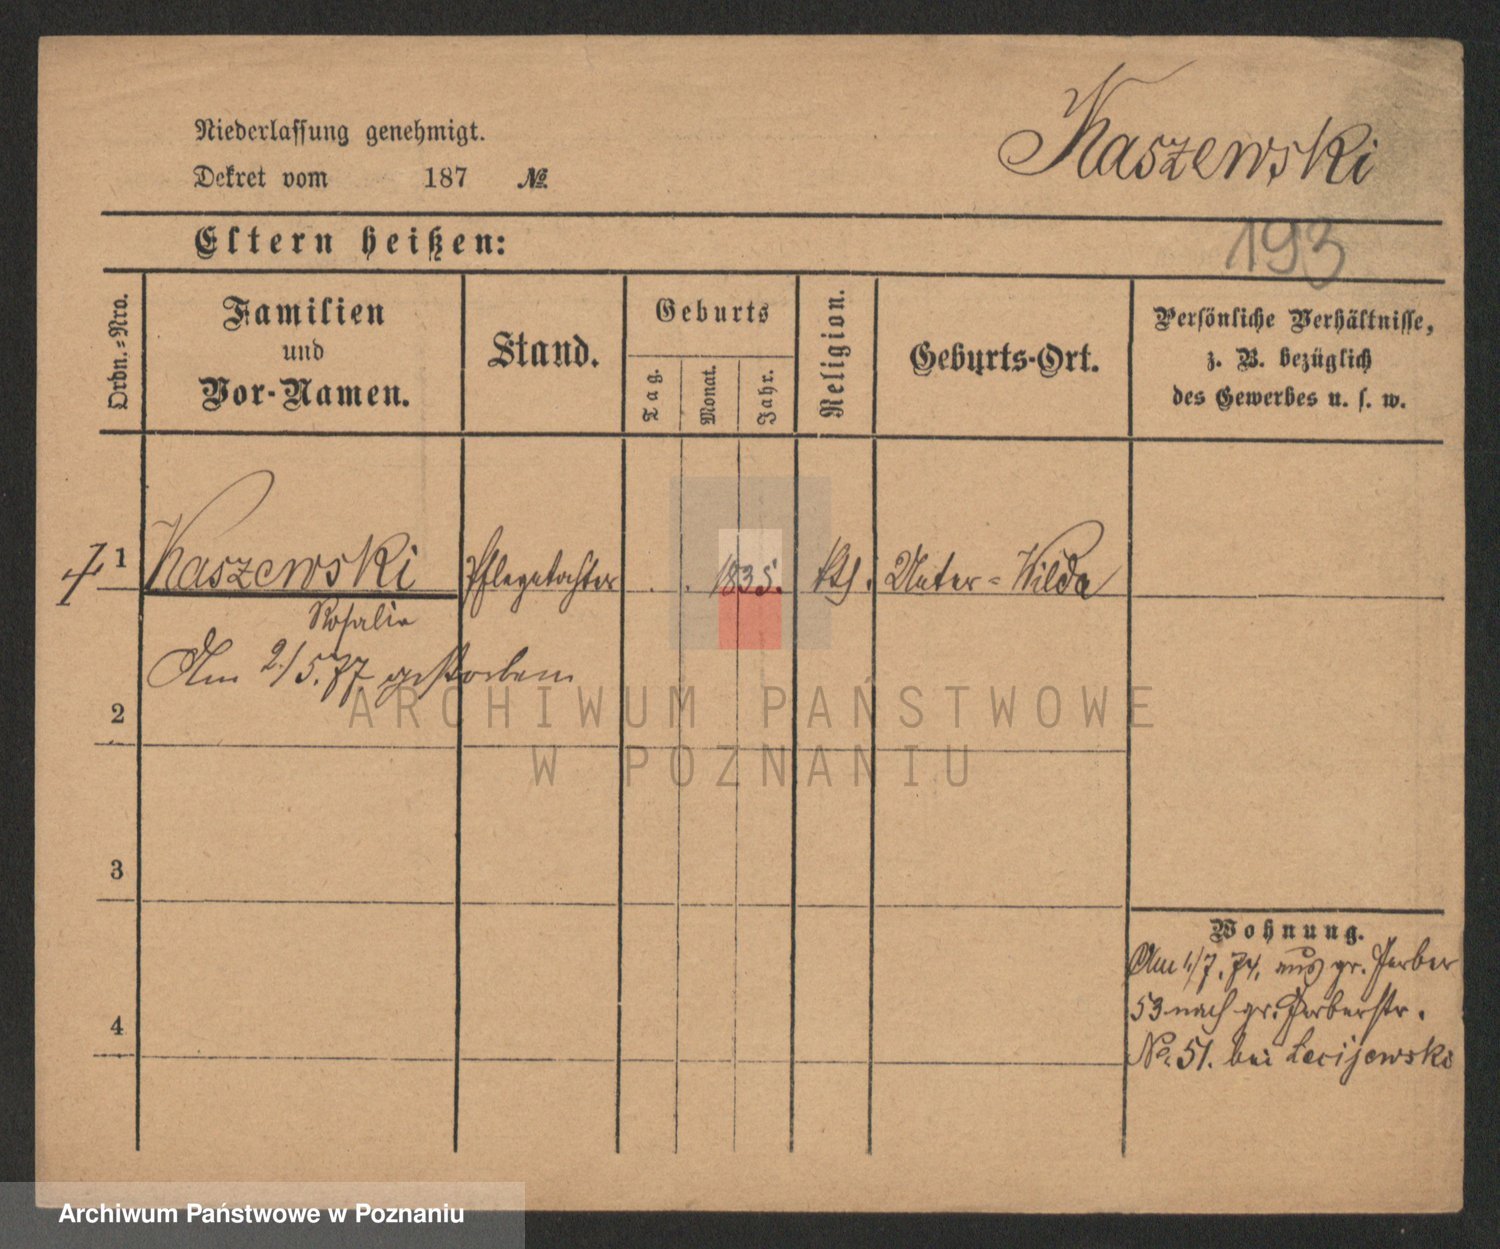 Kaszewski
Niederlassung genehmigt.
Dekret vom 187 №
193
Eltern heißen:
Ordn.=Nro.
Familien
und
Vor-Namen.
Stand.
Geburts
Tag.
Monat.
Jahr.
Religion.
Geburts-Ort.
Persönliche Verhältnisse,
z. B. bezüglich
des Gewerbes u. s. w.
1 Kaszewski Pflegetochter . . 1835. kth. Unter-Wilda
Rosalie
Am 2/5.77 gestorben
2
3
4
Wohnung.
Am 1/7.74. aus gr. Gerber
53 nach gr. Gerberstr.
No. 51. bei Lecijewski
ARCHIWUM PAŃSTWOWE
W POZNANIU
Archiwum Państwowe w Poznaniu